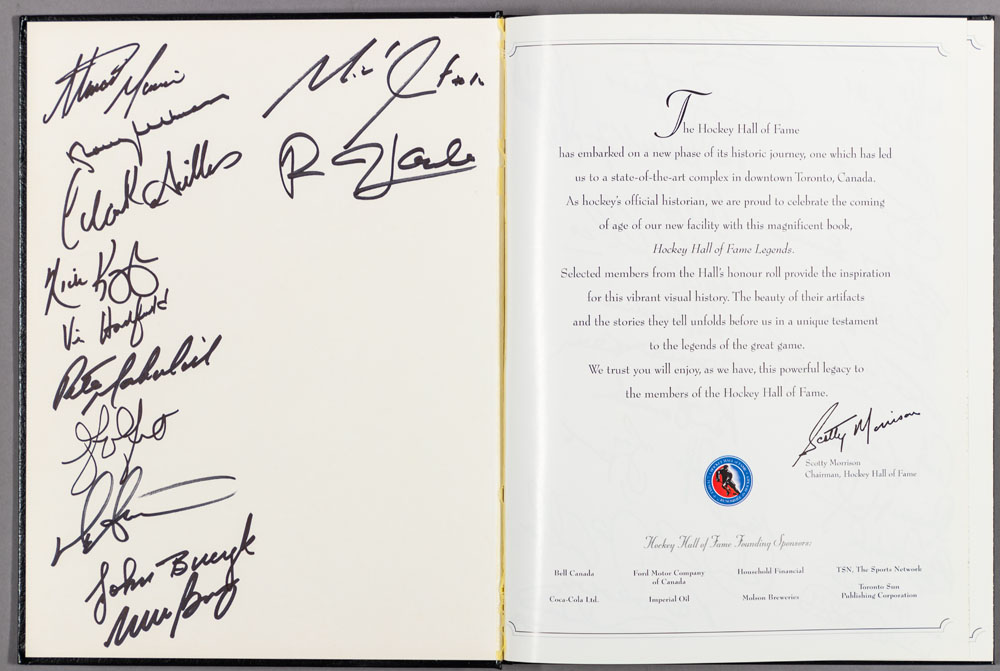 Clark Gillies
Vic Hadfield
Pete Mahovlich
John Bucyk
The Hockey Hall of Fame
has embarked on a new phase of its historic journey, one which has led
us to a state-of-the-art complex in downtown Toronto, Canada.
As hockey's official historian, we are proud to celebrate the coming
of age of our new facility with this magnificent book,
Hockey Hall of Fame Legends.
Selected members from the Hall's honour roll provide the inspiration
for this vibrant visual history. The beauty of their artifacts
and the stories they tell unfolds before us in a unique testament
to the legends of the great game.
We trust you will enjoy, as we have, this powerful legacy to
the members of the Hockey Hall of Fame.
Scotty Morrison
Scotty Morrison
Chairman, Hockey Hall of Fame
Hockey Hall of Fame Founding Sponsors:
Bell Canada
Ford Motor Company
of Canada
Household Financial
TSN, The Sports Network
Coca-Cola Ltd.
Imperial Oil
Molson Breweries
Toronto Sun
Publishing Corporation